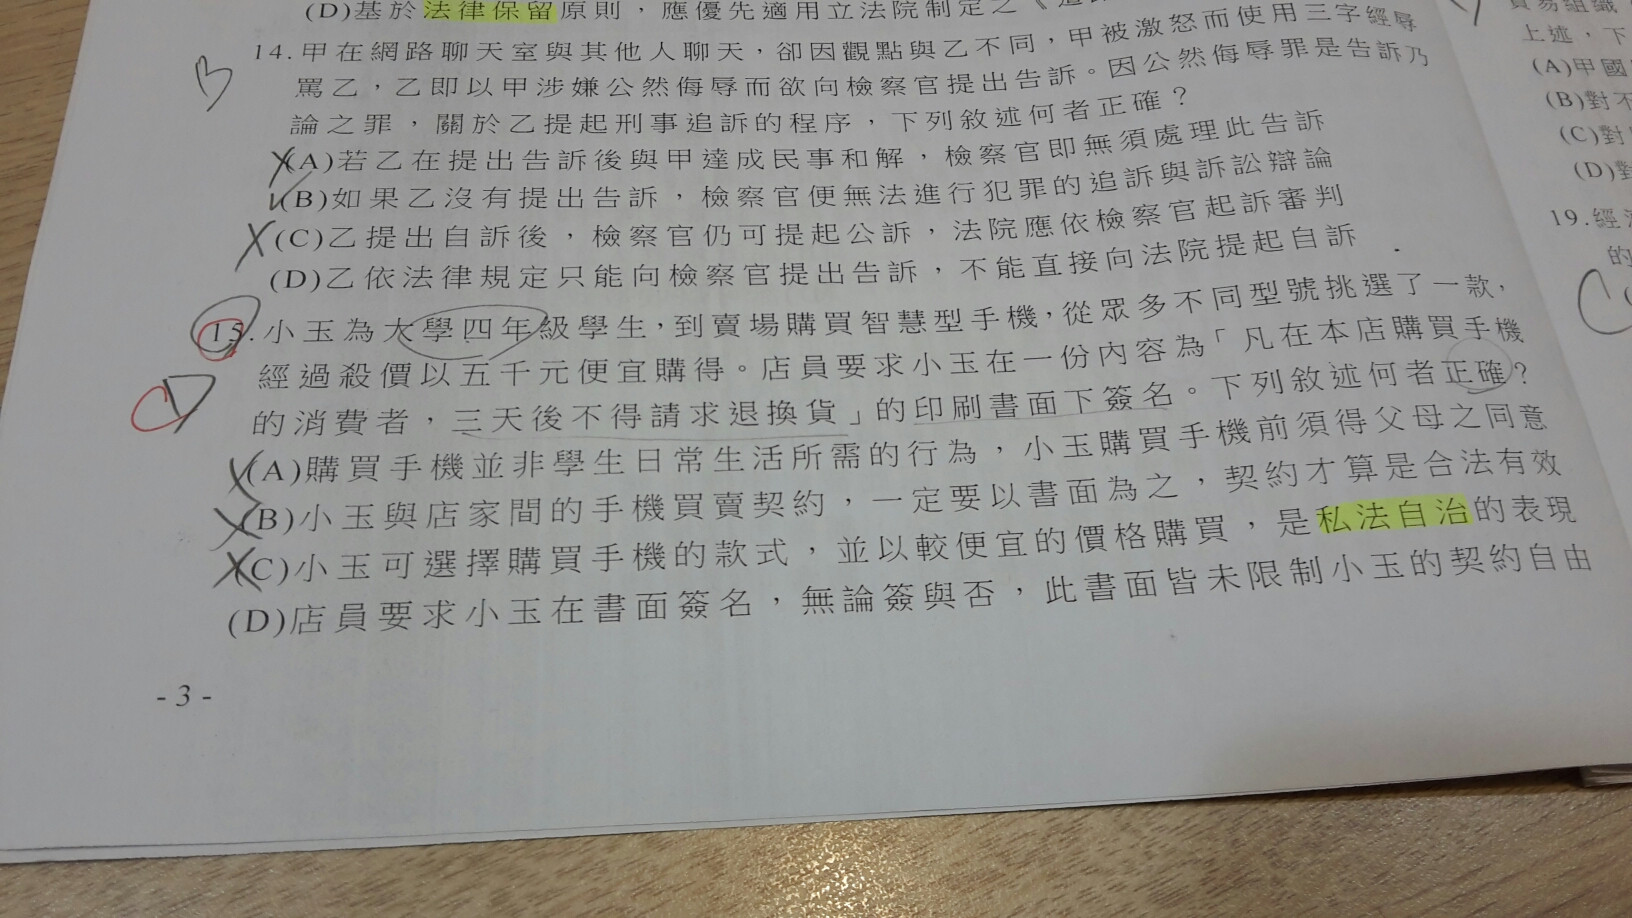 (D)基於法律保留原則，應優先適用立法院制定之《
14.甲在網路聊天室與其他人聊天，卻因觀點與乙不同，甲被激怒而使用三字經辱
罵乙，乙即以甲涉嫌公然侮辱而欲向檢察官提出告訴。因公然侮辱罪是告訴乃
論之罪，關於乙提起刑事追訴的程序，下列敘述何者正確？
(A)若乙在提出告訴後與甲達成民事和解，檢察官即無須處理此告訴
(B)如果乙沒有提出告訴，檢察官便無法進行犯罪的追訴與訴訟辯論
(C)乙提出自訴後，檢察官仍可提起公訴，法院應依檢察官起訴審判
(D)乙依法律規定只能向檢察官提出告訴，不能直接向法院提起自訴
15.小玉為大學四年級學生，到賣場購買智慧型手機，從眾多不同型號挑選了一款，
經過殺價以五千元便宜購得。店員要求小玉在一份內容為「凡在本店購買手機
的消費者，三天後不得請求退換貨」的印刷書面下簽名。下列敘述何者正確？
(A)購買手機並非學生日常生活所需的行為，小玉購買手機前須得父母之同意
(B)小玉與店家間的手機買賣契約，一定要以書面為之，契約才算是合法有效
(C)小玉可選擇購買手機的款式，並以較便宜的價格購買，是私法自治的表現
(D)店員要求小玉在書面簽名，無論簽與否，此書面皆未限制小玉的契約自由
- 3 -
B
D
C
貿易組織
上述，下
(A)甲國
(B)對不
(C)對
(D)對
19.經濟
的
C